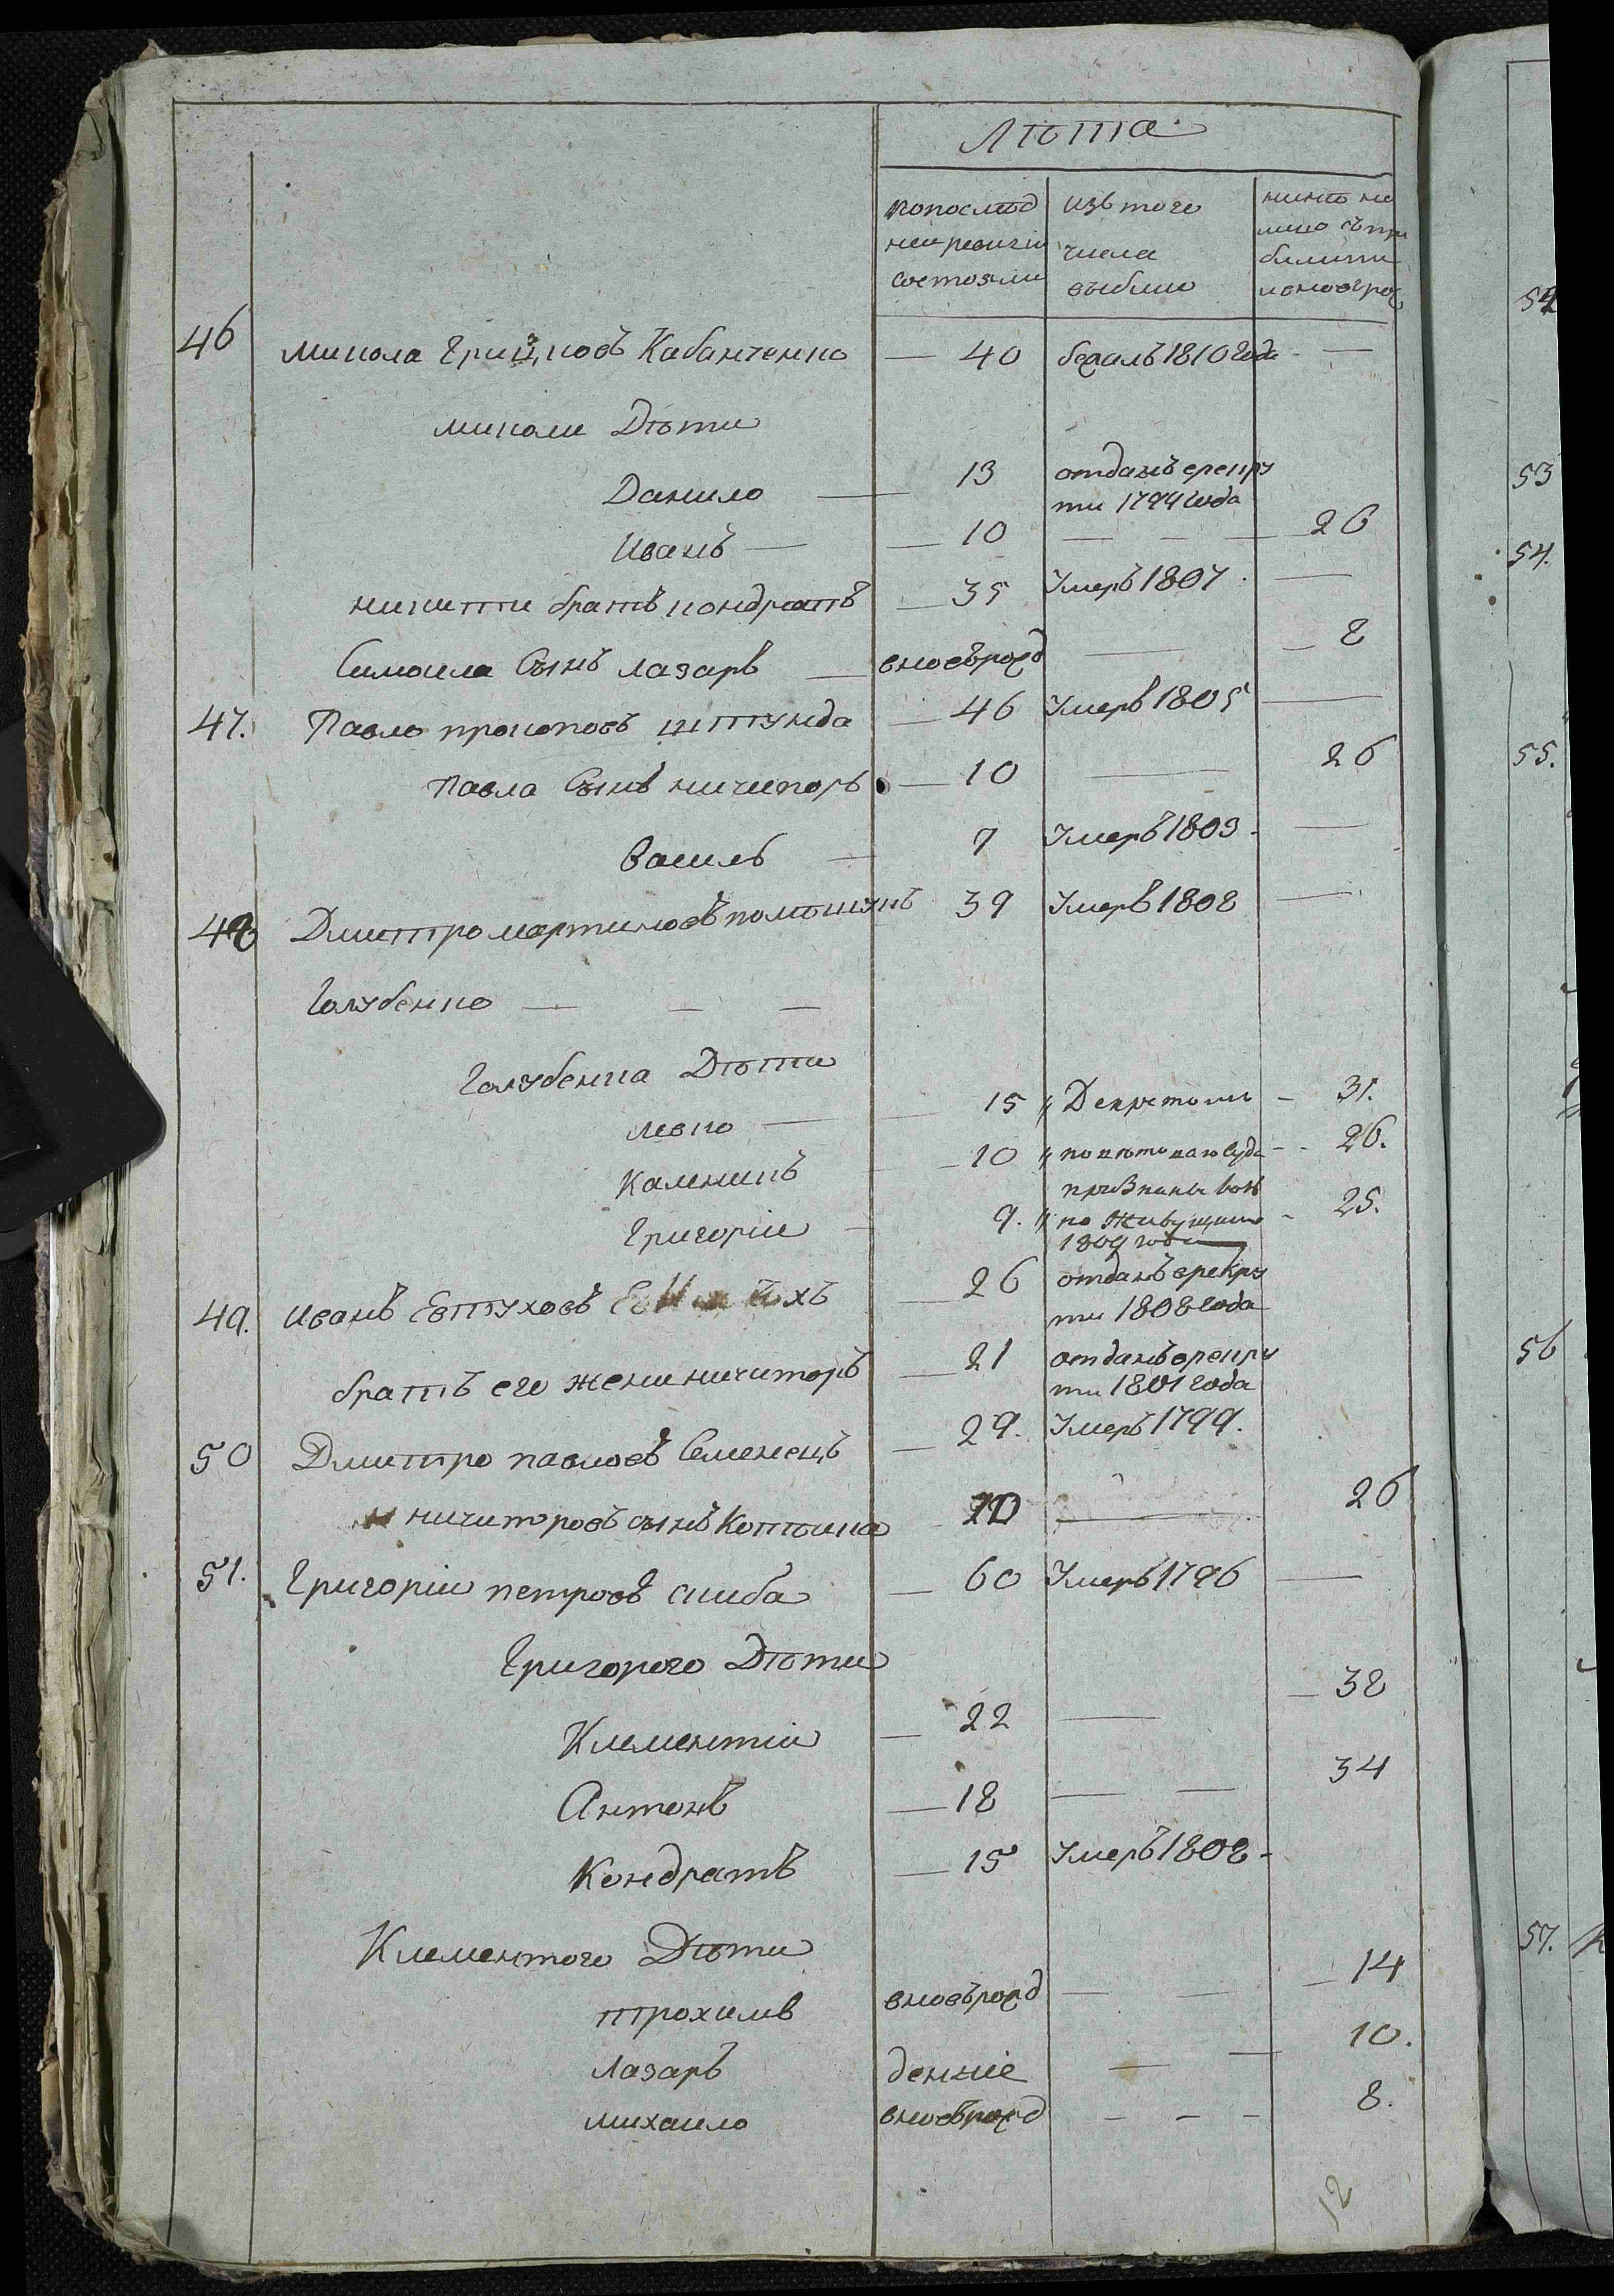 Лѣта
попослѣд
ней ревизіи
состояли
изъ того
числа
выбыло
46 Микола Грицковъ Кабанченко — 40 бежалъ 1810 года — —
миколи Дѣти
Данило — 13 отданъ врекру
ти 1799 года
Иванъ — — 10 — — — 26
никити братъ кондратъ — 35 Умеръ 1807. —
Самоила Сынъ лазарь — вновьрожд — — 8
47. Павло прокоповъ штунда — 46 Умеръ 1805 —
павла Сынъ ничипоръ — 10 — 26
Василь — 7 Умеръ 1809. —
48 Дмитро мартиновъ 39 Умеръ 1808 —
Голубенко — — —
Голубенка Дѣти
левко — 15 — 31.
Каленикъ — 10 — 26.
Григоріи — 9. по Живущимъ — 25.
1809 года
49. Иванъ Евтуховъ — 26 отданъ врекру
ти 1808 года
братъ его жени ничипоръ — 21 отданъ врекру
ти 1801 года
50 Дмитро павловъ Семенецъ — 29. Умеръ 1799.
ничипоровъ сынъ — 10 — 26
51. Григоріи петровъ скиба — 60 Умеръ 1796 —
Григорого Дѣти
Клементіи — 22 — — 38
Антонъ — 18 — — 34
Кондратъ — 15 Умеръ 1808 -
Клементого Дѣти
трохимъ вновьрожд — — — 14
лазарь денніе — — 10.
михаило вновьрожд - - - 8.
12
54
53
54.
55.
56
57.